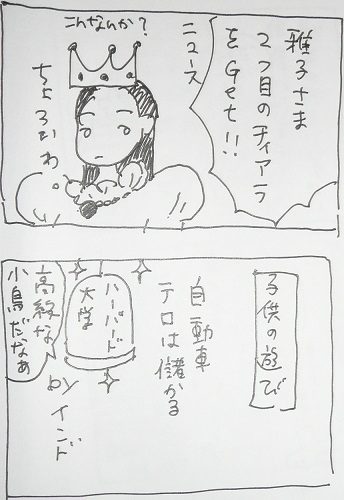 雅子さま
2つ目のティアラ
をGet!!
ニュース
こんなんか?
ちょろかわ。
子供の遊び
自動車
テロは儲かる
ハーバード
大学
高級な
小鳥だなぁ
by インド